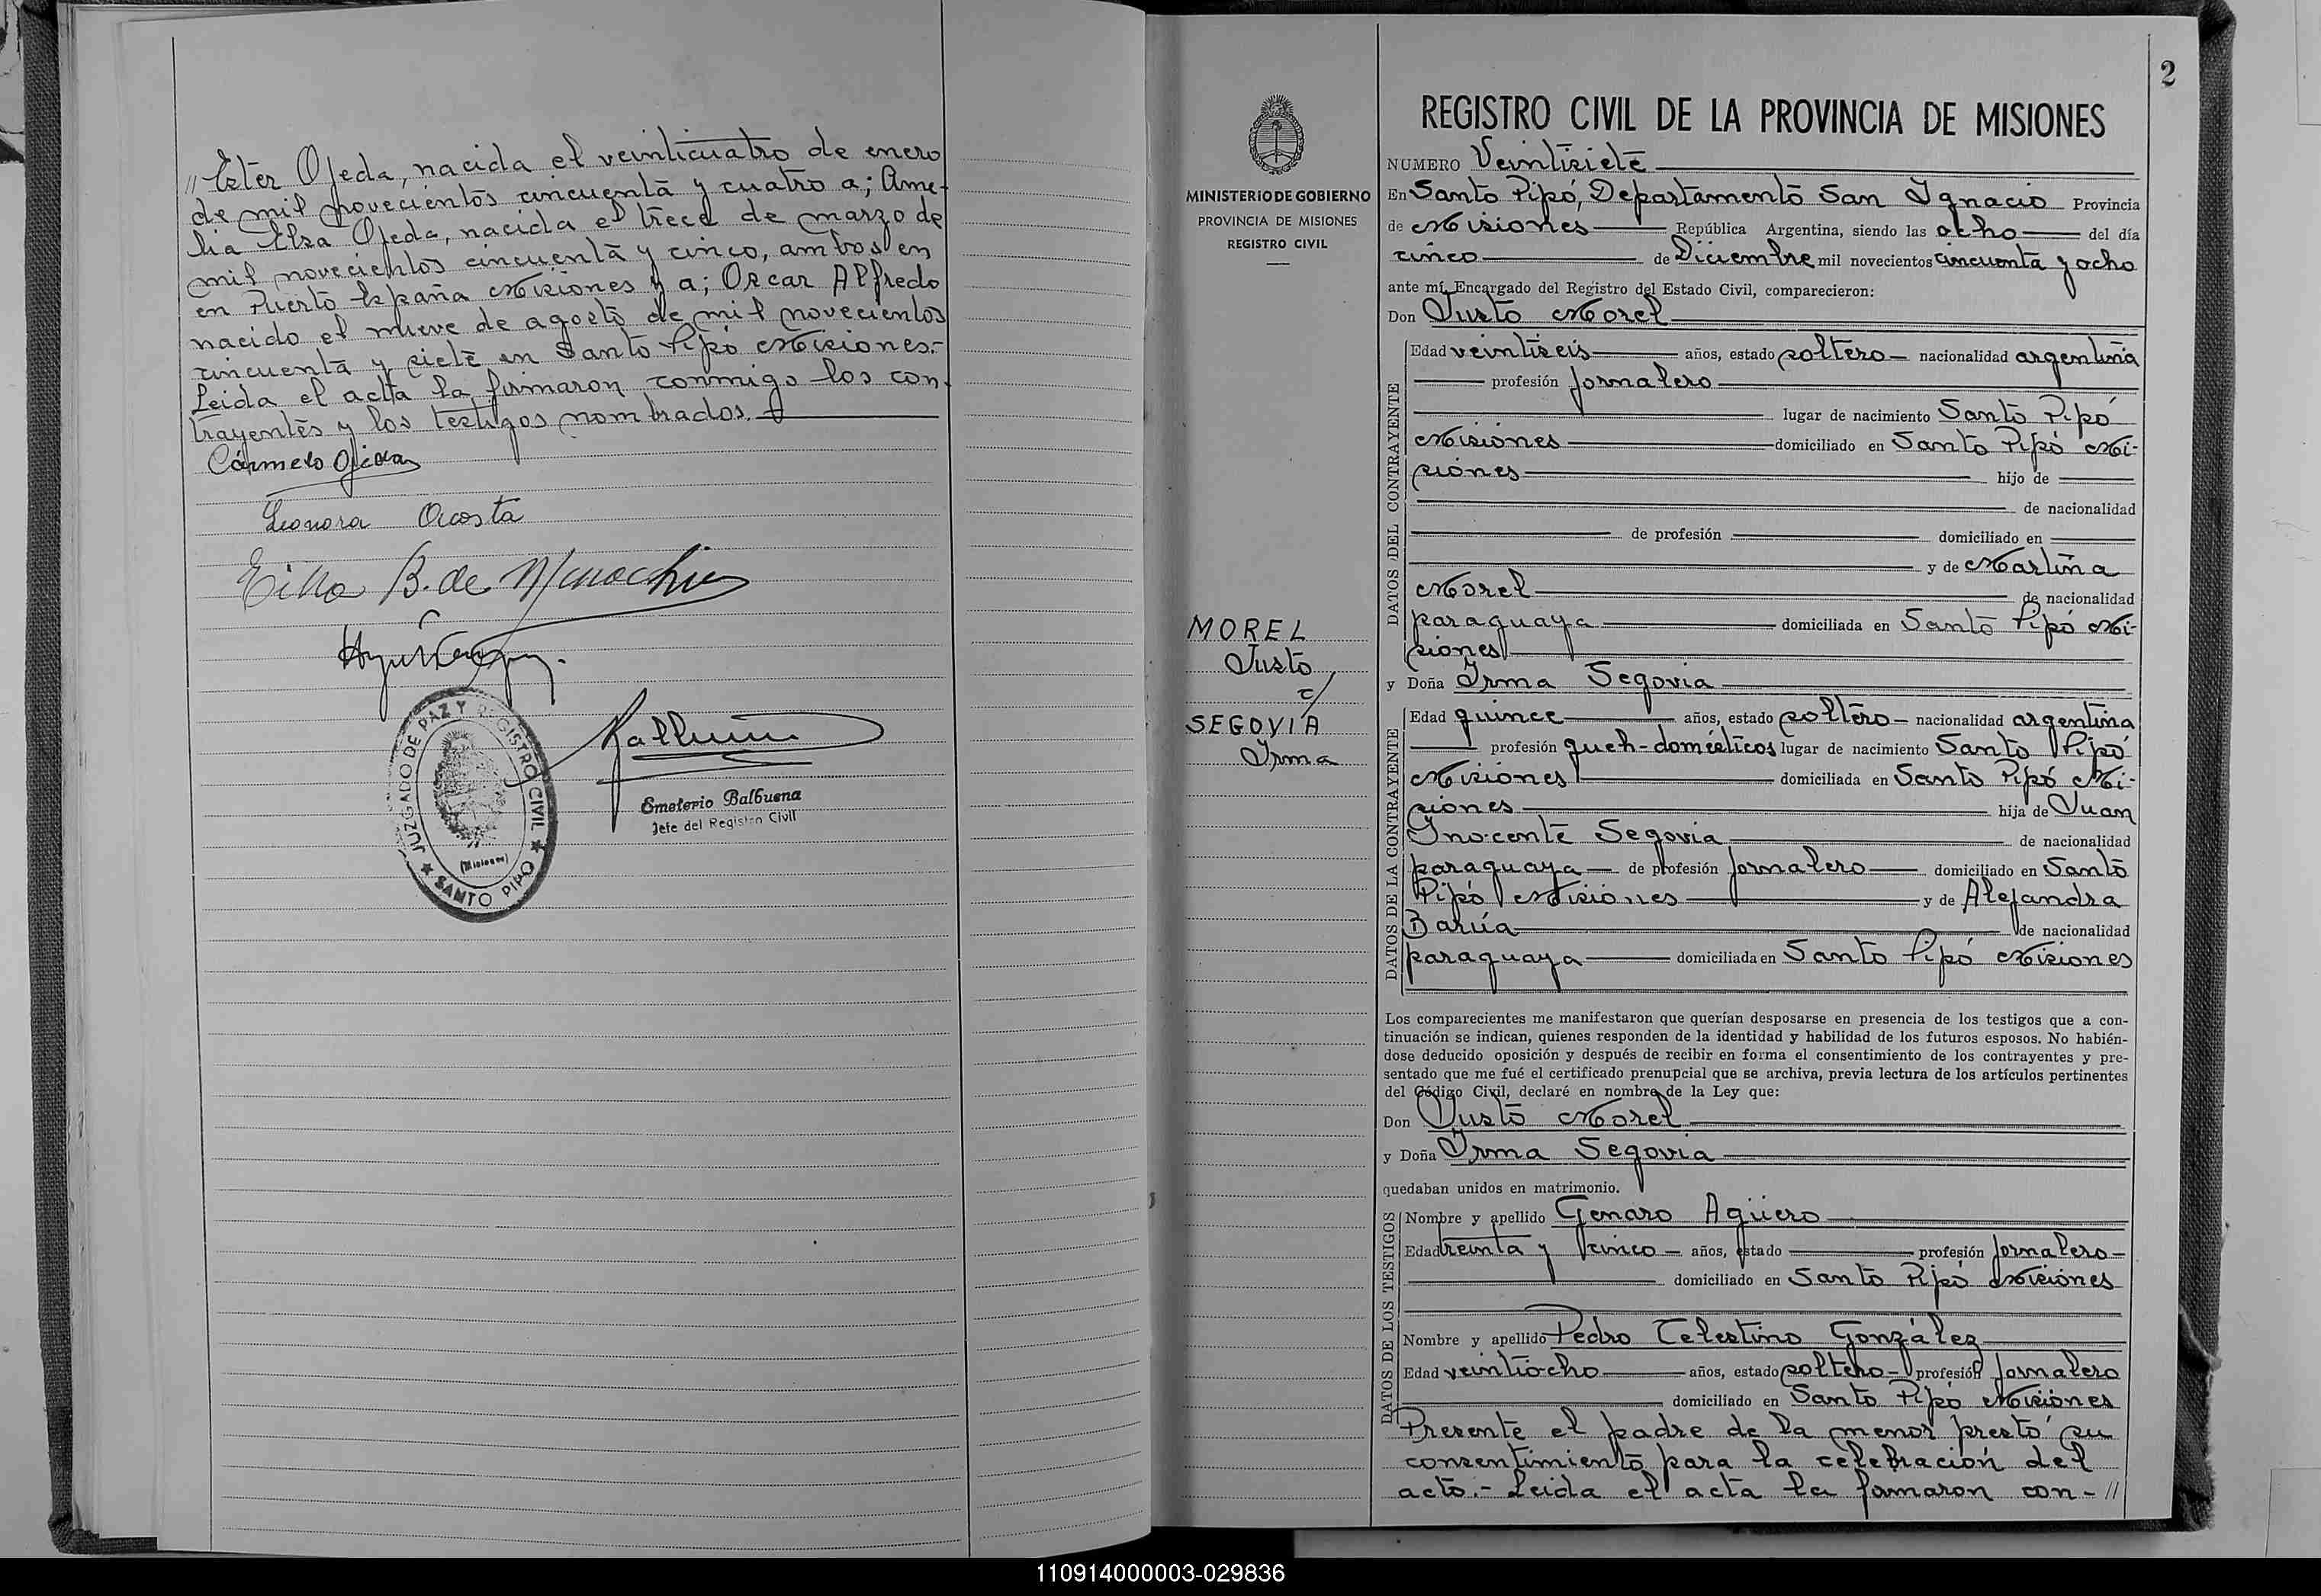 // Ester Ojeda, nacida el veinticuatro de enero
de mil novecientos cincuenta y cuatro a; Ame-
lia Elsa Ojeda, nacida el trece de marzo de
mil novecientos cincuenta y cinco, ambos en
en Puerto España Misiones y a; Oscar Alfredo
nacido el nueve de agosto de mil novecientos
cincuenta y siete en Santo Pipó Misiones.-
Leida el acta la firmaron conmigo los con-
trayentes y los testigos nombrados.
Cármelo Ojeda
Leonora Acosta
B. de
JUZGADO DE PAZ Y REGISTRO CIVIL
(Misiones)
★ SANTO PIPO ★
Emeterio Balbuena
Jefe del Registro Civil
2
MINISTERIO DE GOBIERNO
PROVINCIA DE MISIONES
REGISTRO CIVIL
MOREL
Justo
c/
SEGOVIA
Irma
REGISTRO CIVIL DE LA PROVINCIA DE MISIONES
NUMERO Veintisiete
En Santo Pipó, Departamento San Ignacio Provincia
de Misiones República Argentina, siendo las ocho del día
cinco de Diciembre mil novecientos cincuenta y ocho
ante mí, Encargado del Registro del Estado Civil, comparecieron:
Don Justo Morel
DATOS DEL CONTRAYENTE
Edad veintiseis años, estado soltero nacionalidad argentina
profesión Jornalero
lugar de nacimiento Santo Pipó
Misiones domiciliado en Santo Pipó Mi-
siones hijo de
de nacionalidad
de profesión domiciliado en
y de Martina
Morel de nacionalidad
paraguaya domiciliada en Santo Pipó Mi-
siones
y Doña Irma Segovia
DATOS DE LA CONTRAYENTE
Edad quince años, estado soltero nacionalidad argentina
profesión queh-domésticos lugar de nacimiento Santo Pipó
Misiones domiciliada en Santo Pipó Mi-
siones hija de Juan
Inocente Segovia de nacionalidad
paraguaya de profesión Jornalero domiciliado en Santo
Pipó Misiones y de Alejandra
Barúa de nacionalidad
paraguaya domiciliada en Santo Pipó Misiones
Los comparecientes me manifestaron que querían desposarse en presencia de los testigos que a con-
tinuación se indican, quienes responden de la identidad y habilidad de los futuros esposos. No habién-
dose deducido oposición y después de recibir en forma el consentimiento de los contrayentes y pre-
sentado que me fué el certificado prenupcial que se archiva, previa lectura de los artículos pertinentes
del Código Civil, declaré en nombre de la Ley que:
Don Justo Morel
y Doña Irma Segovia
quedaban unidos en matrimonio.
DATOS DE LOS TESTIGOS
Nombre y apellido Genaro Agüero
Edad treinta y cinco años, estado profesión Jornalero
domiciliado en Santo Pipó Misiones
Nombre y apellido Pedro Celestino González
Edad veintiocho años, estado soltero profesión Jornalero
domiciliado en Santo Pipó Misiones
Presente el padre de la menor prestó su
consentimiento para la celebración del
acto.- Leida el acta la firmaron con- //
110914000003-029836